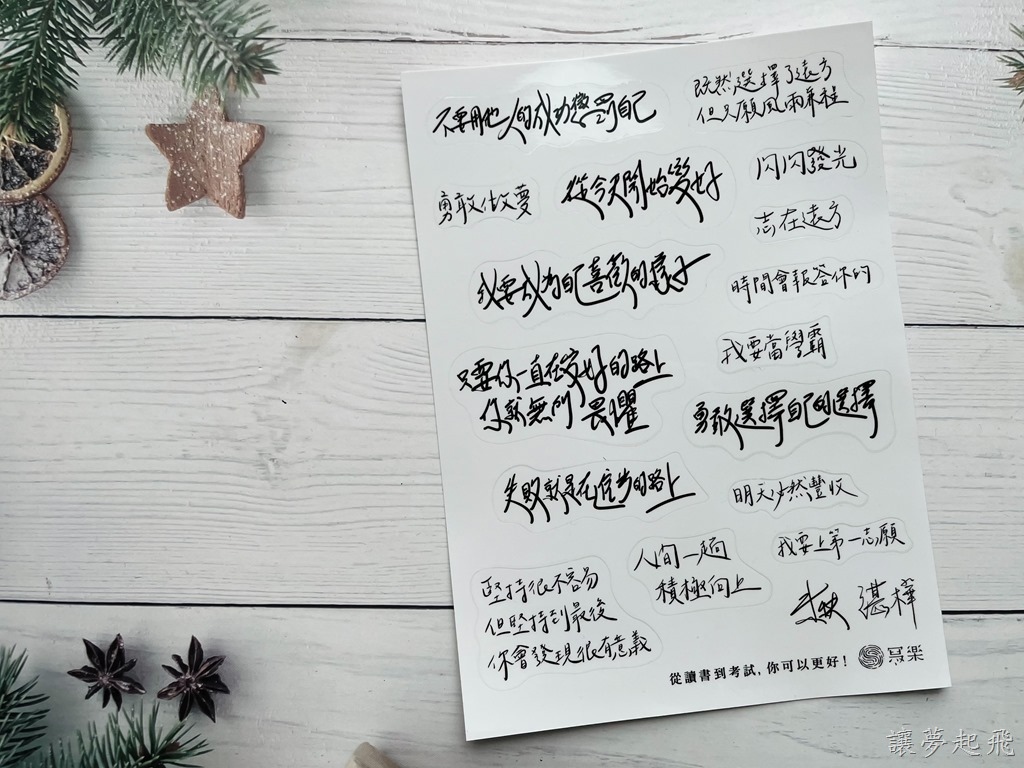 不要用他人的成功懲罰自己
既然選擇了遠方
但只願風雨兼程
勇敢做夢
從今天開始變好
閃閃發光
志在遠方
我要成為自己喜歡的樣子
時間會報答你的
我要當學霸
只要你一直在變好的路上
你就無所畏懼
勇敢選擇自己的選擇
失敗就是在進步的路上
明天必然豐收
我要上第一志願
人間一趟
積極向上
堅持很不容易
但堅持到最後
你會發現很有意義
湛樺
從讀書到考試，你可以更好！
寫樂
讓夢起飛